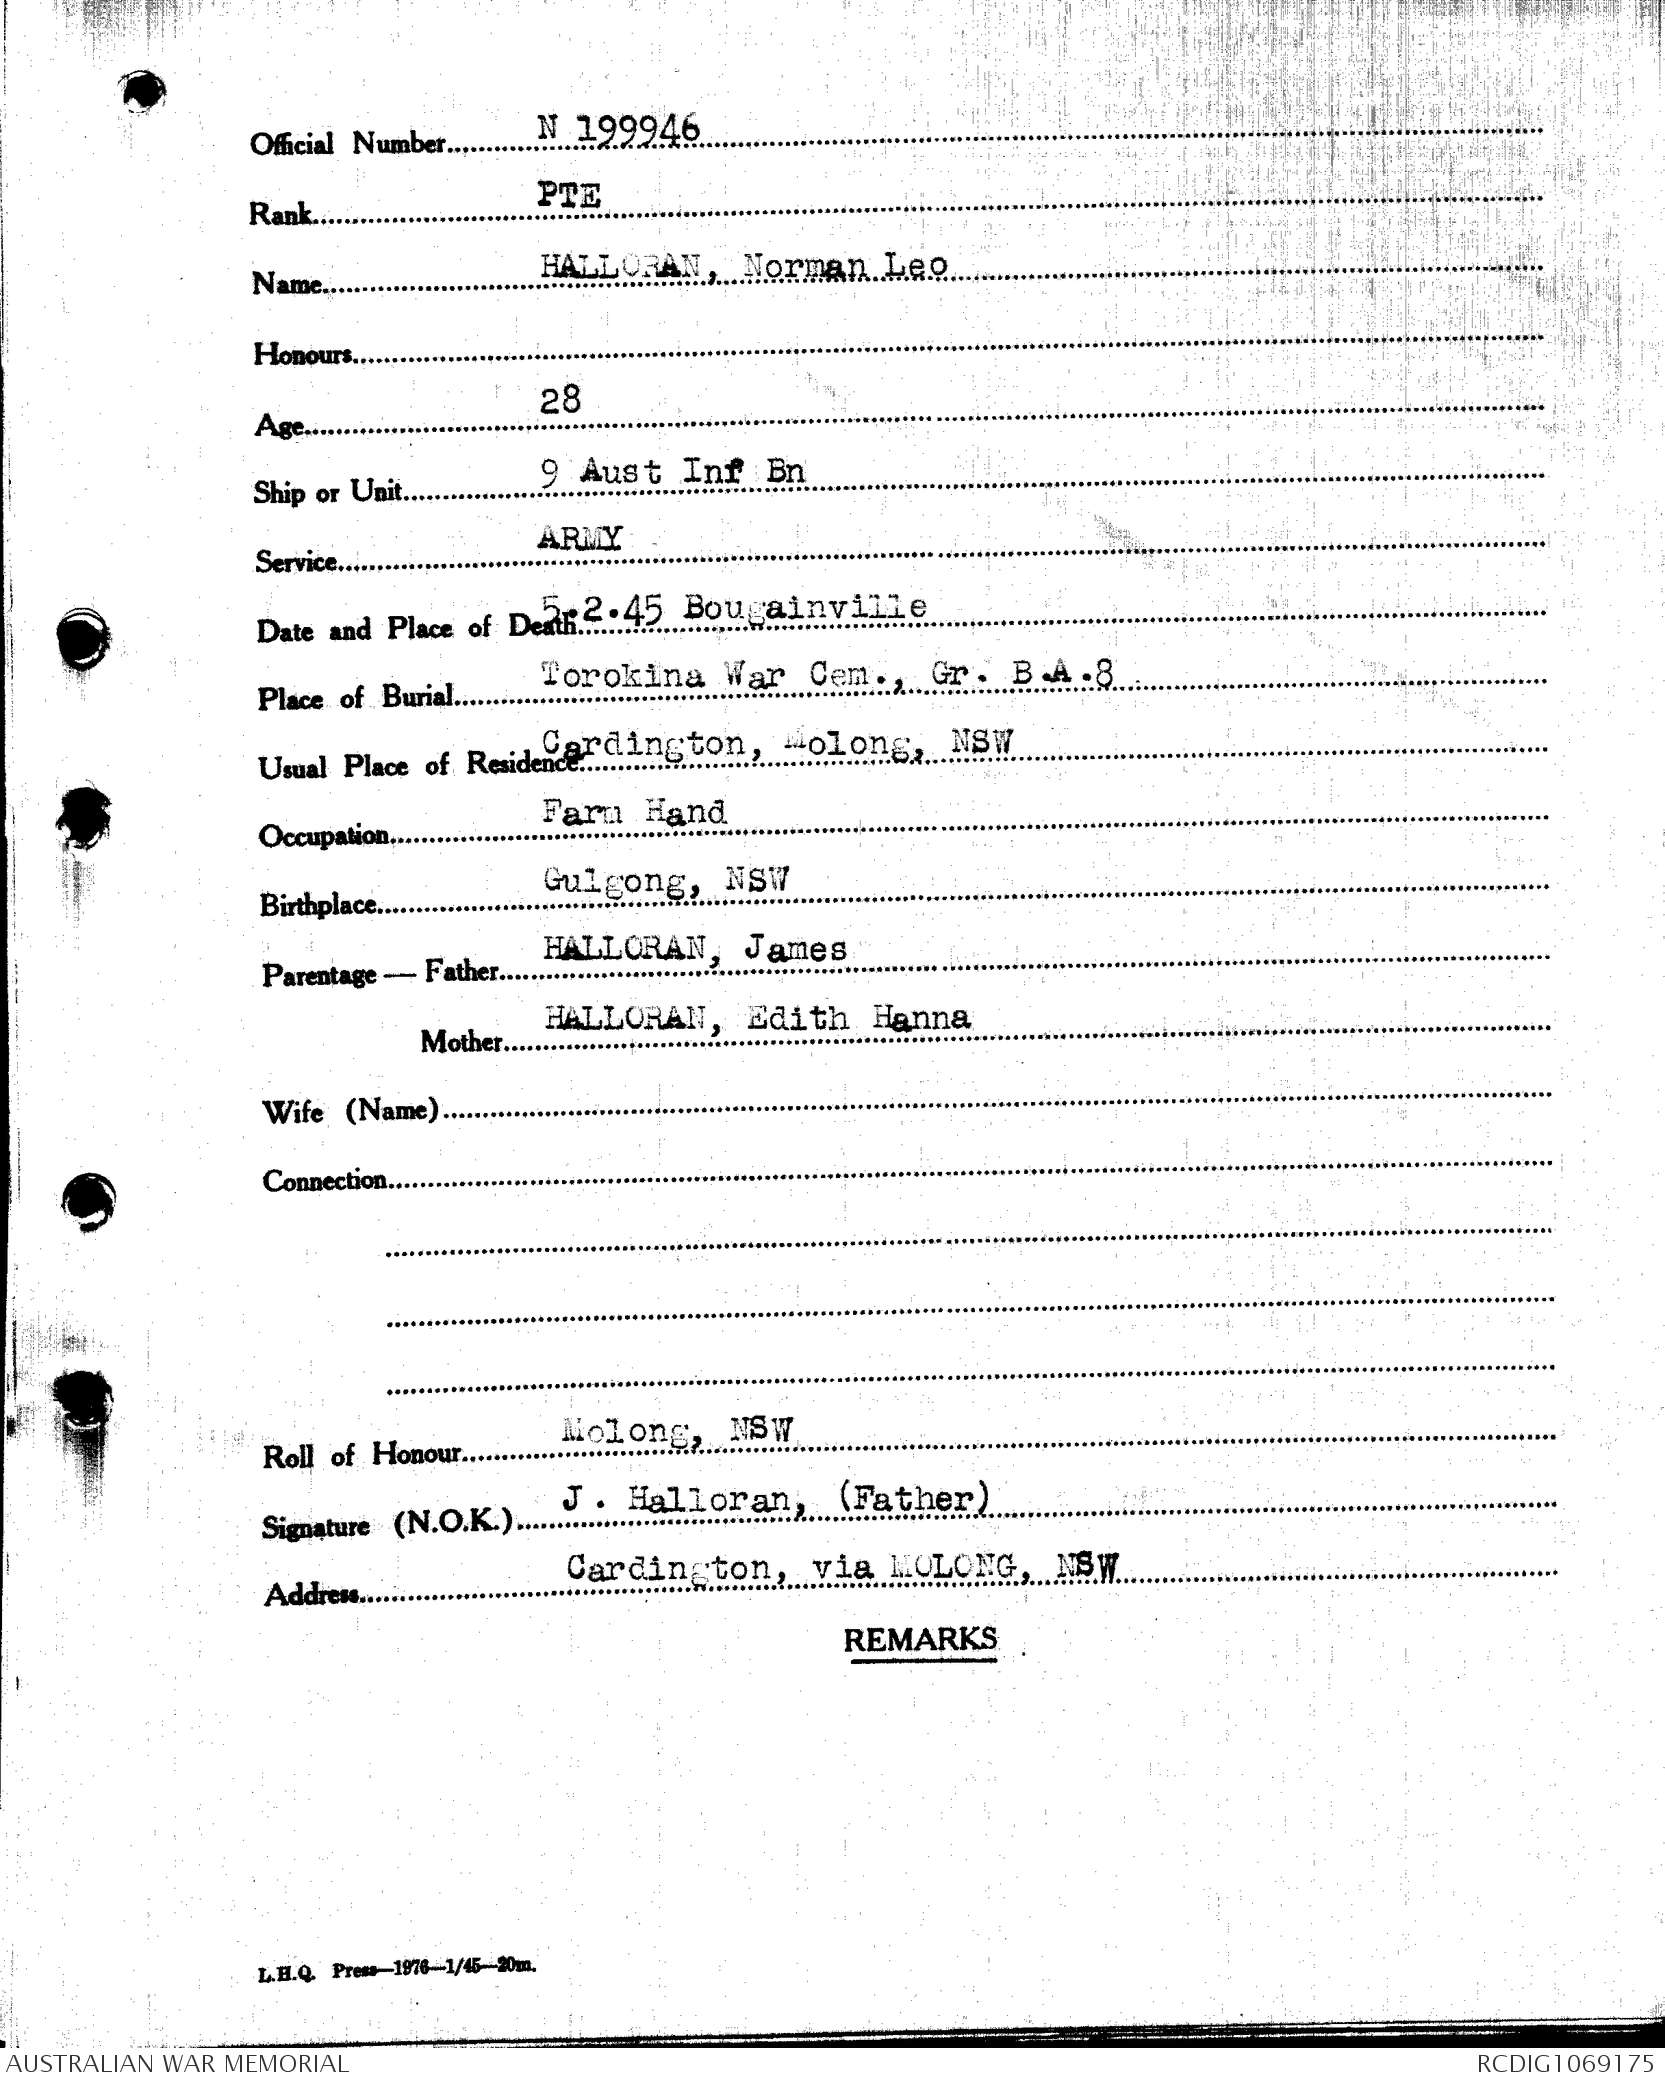 Official Number N 199946
Rank PTE
Name HALLORAN, Norman Leo
Honours
Age 28
Ship or Unit 9 Aust Inf Bn
Service ARMY
Date and Place of Death 5.2.45 Bougainville
Place of Burial Torokina War Cem., Gr. B.A.8
Usual Place of Residence Cardington, Molong, NSW
Occupation Farm Hand
Birthplace Gulgong, NSW
Parentage — Father HALLORAN, James
Mother HALLORAN, Edith Hanna
Wife (Name)
Connection
Roll of Honour Molong, NSW
Signature (N.O.K.) J. Halloran, (Father)
Address Cardington, via MOLONG, NSW
REMARKS
L.H.Q. Press—1976—1/45—20m.
AUSTRALIAN WAR MEMORIAL RCDIG1069175